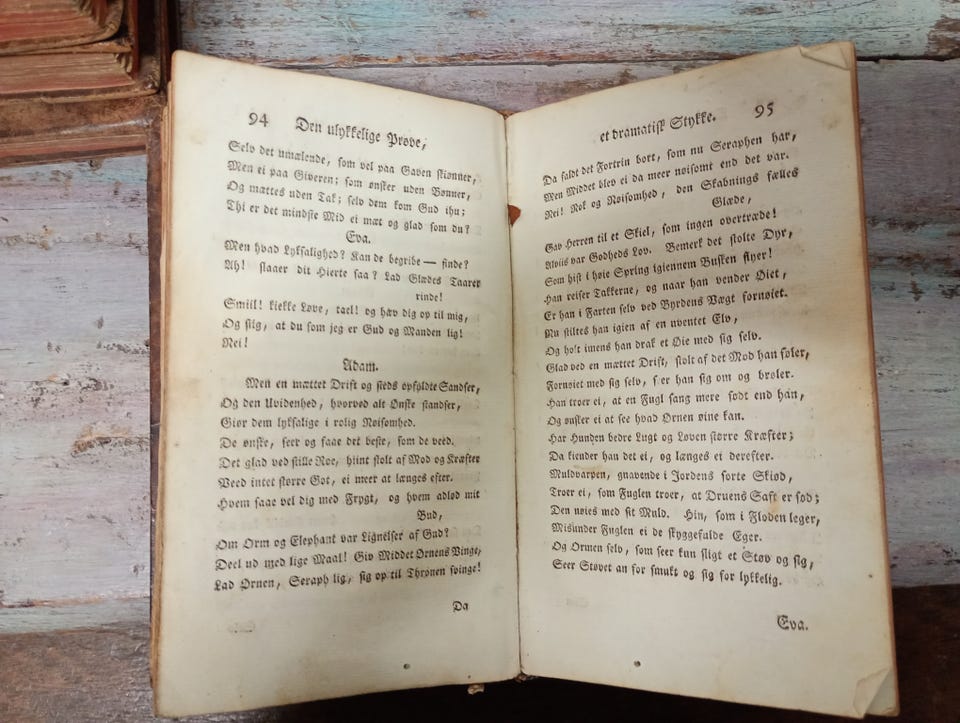 94 Den ulykkelige Prøve,
Selv det umælende, som vel paa Gaven skiønner,
Men ei paa Giveren; som ønsker uden Bønner,
Og mættes uden Tak; selv dem kom Gud ihu;
Thi er det mindste Mid ei mæt og glad som du?
Eva.
Men hvad Lyksalighed? Kan de begribe — finde?
Ah! slaaer dit Hierte saa? Lad Glædes Taarer
rinde!
Smiil! kiekke Løve, tael! og hæv dig op til mig,
Og siig, at du som jeg er Gud og Manden lig!
Nei!
Adam.
Men en mættet Drift og steds opfyldte Sandser,
Og den Uvidenhed, hvorved alt Ønske standser,
Giør dem lyksalige i rolig Nøisomhed.
De ønske, seer og faae det beste, som de veed.
Det glad ved stille Roe, hiint stolt af Mod og Kræfter
Veed intet større Got, ei meer at længes efter.
Hvem saae vel dig med Frygt, og hvem adlød mit
Bud,
Om Orm og Elephant var Lignelser af Gud?
Deel ud med lige Maal! Giv Middet Ørnens Vinge,
Lad Ørnen, Seraph lig, sig op til Thronen svinge!
Da
et dramatisk Stykke. 95
Da faldt det Fortrin bort, som nu Seraphen har,
Men Middet blev ei da meer nøisomt end det var.
Nei! Nok og Nøisomhed, den Skabnings fælles
Glæde,
Gav Herren til et Skiel, som ingen overtræde!
Alviis var Godheds Lov. Bemerk det stolte Dyr,
Som hist i høie Spring igiennem Busken flyer!
Han reiser Takkerne, og naar han vender Øiet,
Er han i Farten selv ved Byrdens Vægt fornøiet.
Nu skiltes han igien af en uventet Elv,
Og holt imens han drak et Øie med sig selv.
Glad ved en mættet Drift, stolt af det Mod han føler,
Fornøiet med sig selv, seer han sig om og brøler.
Han troer ei, at en Fugl sang mere sødt end han,
Og ønsker ei at see hvad Ørnen øine kan.
Har Hunden bedre Lugt og Løven større Kræfter;
Da kiender han det ei, og længes ei derefter.
Muldvarpen, gnavende i Jordens sorte Skiød,
Troer ei, som Fuglen troer, at Druens Saft er sød;
Den nøies med sit Muld. Hin, som i Floden leger,
Misunder Fuglen ei de skyggefulde Eger.
Og Ormen selv, som seer kun sligt et Støv og sig,
Seer Støvet an for smukt og sig for lykkelig.
Eva.